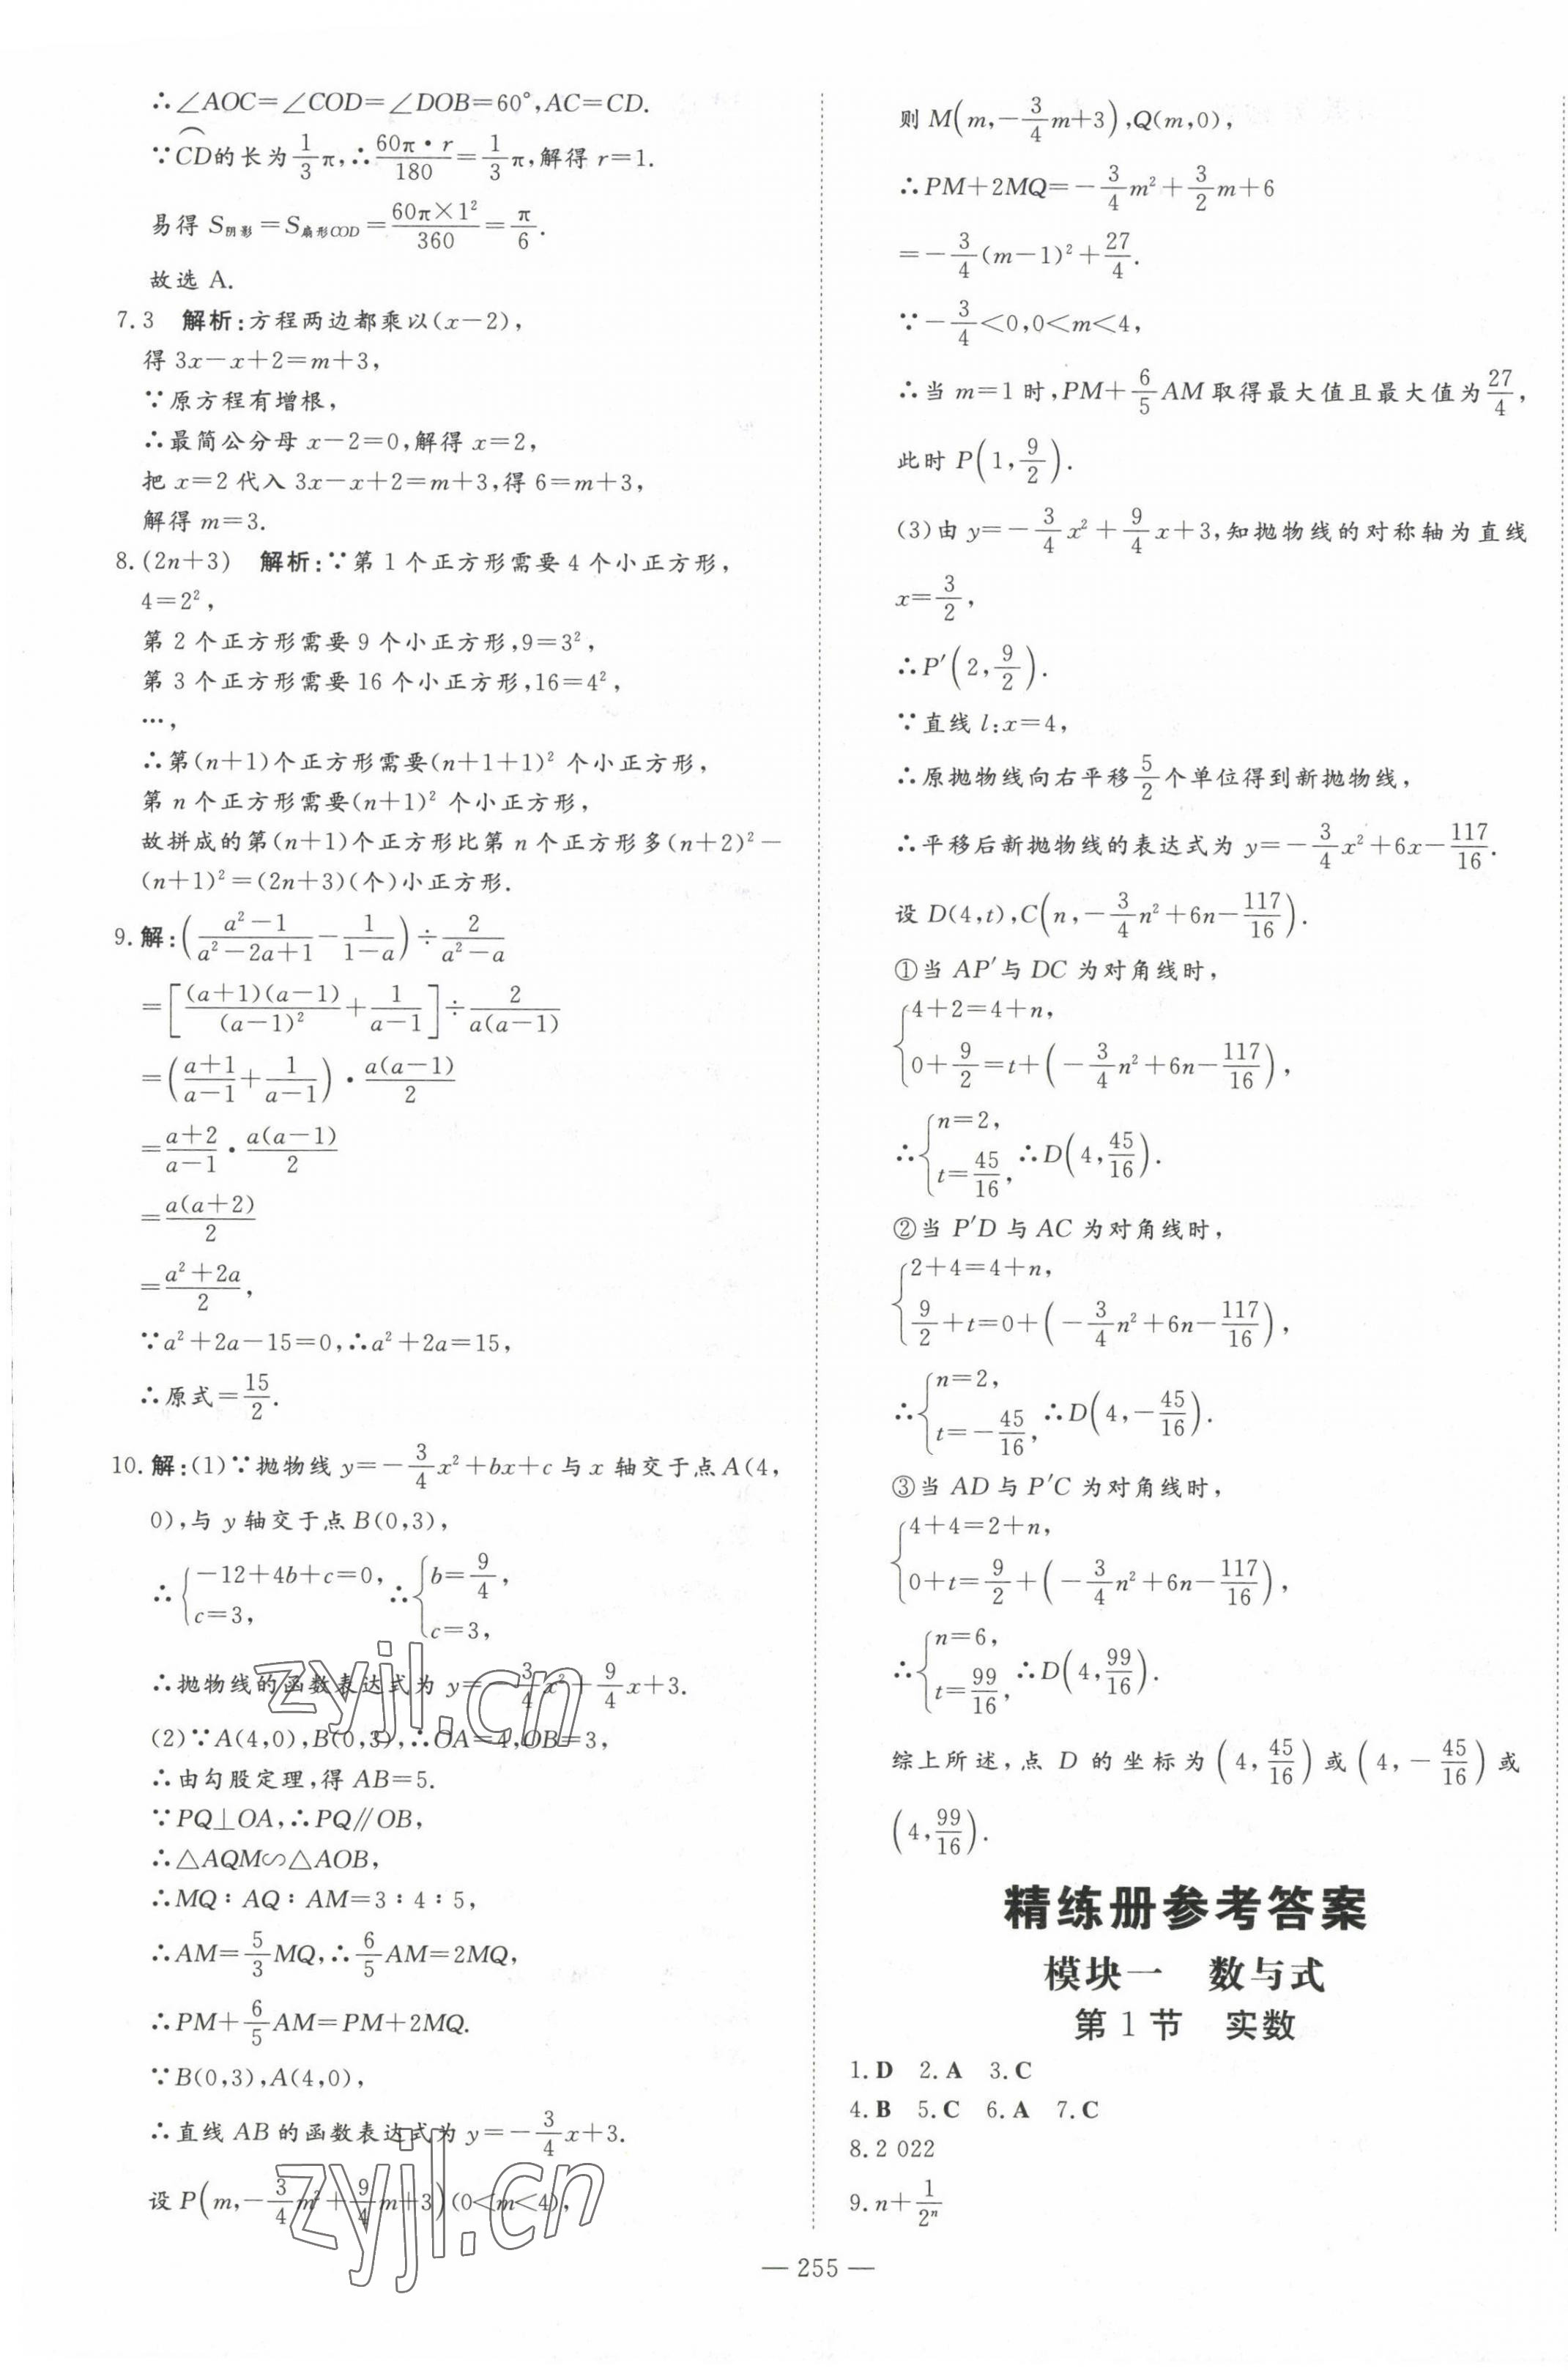 ∴∠AOC=∠COD=∠DOB=60°,AC=CD.
∵$\overset{\frown}{CD}$的长为$\frac{1}{3}$π,∴$\frac{60π·r}{180}$=$\frac{1}{3}$π,解得 r=1.
易得 S阴影=S扇形COD=$\frac{60π×1^2}{360}$=$\frac{π}{6}$.
故选 A.
7.3 解析:方程两边都乘以(x−2),
得 3x−x+2=m+3,
∵原方程有增根,
∴最简公分母 x−2=0,解得 x=2,
把 x=2 代入 3x−x+2=m+3,得 6=m+3,
解得 m=3.
8.(2n+3) 解析:∵第 1 个正方形需要 4 个小正方形,
4=2²,
第 2 个正方形需要 9 个小正方形,9=3²,
第 3 个正方形需要 16 个小正方形,16=4²,
…,
∴第(n+1)个正方形需要(n+1+1)² 个小正方形,
第 n 个正方形需要(n+1)² 个小正方形,
故拼成的第(n+1)个正方形比第 n 个正方形多(n+2)²−
(n+1)²=(2n+3)(个)小正方形.
9.解:$\left(\frac{a^2-1}{a^2-2a+1}-\frac{1}{1-a}\right)÷\frac{2}{a^2-a}$
=$\left[\frac{(a+1)(a-1)}{(a-1)^2}+\frac{1}{a-1}\right]÷\frac{2}{a(a-1)}$
=$\left(\frac{a+1}{a-1}+\frac{1}{a-1}\right)·\frac{a(a-1)}{2}$
=$\frac{a+2}{a-1}·\frac{a(a-1)}{2}$
=$\frac{a(a+2)}{2}$
=$\frac{a^2+2a}{2}$,
∵a²+2a−15=0,∴a²+2a=15,
∴原式=$\frac{15}{2}$.
10.解:(1)∵抛物线 y=−$\frac{3}{4}$x²+bx+c 与 x 轴交于点 A(4,
0),与 y 轴交于点 B(0,3),
∴$\begin{cases}-12+4b+c=0,\\c=3,\end{cases}$∴$\begin{cases}b=\frac{9}{4},\\c=3,\end{cases}$
∴抛物线的函数表达式为 y=−$\frac{3}{4}$x²+$\frac{9}{4}$x+3.
(2)∵A(4,0),B(0,3),∴OA=4,OB=3,
∴由勾股定理,得 AB=5.
∵PQ⊥OA,∴PQ∥OB,
∴△AQM∽△AOB,
∴MQ∶AQ∶AM=3∶4∶5,
∴AM=$\frac{5}{3}$MQ,∴$\frac{6}{5}$AM=2MQ,
∴PM+$\frac{6}{5}$AM=PM+2MQ.
∵B(0,3),A(4,0),
∴直线 AB 的函数表达式为 y=−$\frac{3}{4}$x+3.
设 P$\left(m,-\frac{3}{4}m^2+\frac{9}{4}m+3\right)$(0<m<4),
则 M$\left(m,-\frac{3}{4}m+3\right)$,Q(m,0),
∴PM+2MQ=−$\frac{3}{4}$m²+$\frac{3}{2}$m+6
=−$\frac{3}{4}$(m−1)²+$\frac{27}{4}$.
∵−$\frac{3}{4}$<0,0<m<4,
∴当 m=1 时,PM+$\frac{6}{5}$AM 取得最大值且最大值为$\frac{27}{4}$,
此时 P$\left(1,\frac{9}{2}\right)$.
(3)由 y=−$\frac{3}{4}$x²+$\frac{9}{4}$x+3,知抛物线的对称轴为直线
x=$\frac{3}{2}$,
∴P′$\left(2,\frac{9}{2}\right)$.
∵直线 l:x=4,
∴原抛物线向右平移$\frac{5}{2}$个单位得到新抛物线,
∴平移后新抛物线的表达式为 y=−$\frac{3}{4}$x²+6x−$\frac{117}{16}$.
设 D(4,t),C$\left(n,-\frac{3}{4}n^2+6n-\frac{117}{16}\right)$.
①当 AP′与 DC 为对角线时,
$\begin{cases}4+2=4+n,\\0+\frac{9}{2}=t+\left(-\frac{3}{4}n^2+6n-\frac{117}{16}\right),\end{cases}$
∴$\begin{cases}n=2,\\t=\frac{45}{16},\end{cases}$∴D$\left(4,\frac{45}{16}\right)$.
②当 P′D 与 AC 为对角线时,
$\begin{cases}2+4=4+n,\\\frac{9}{2}+t=0+\left(-\frac{3}{4}n^2+6n-\frac{117}{16}\right),\end{cases}$
∴$\begin{cases}n=2,\\t=-\frac{45}{16},\end{cases}$∴D$\left(4,-\frac{45}{16}\right)$.
③当 AD 与 P′C 为对角线时,
$\begin{cases}4+4=2+n,\\0+t=\frac{9}{2}+\left(-\frac{3}{4}n^2+6n-\frac{117}{16}\right),\end{cases}$
∴$\begin{cases}n=6,\\t=\frac{99}{16},\end{cases}$∴D$\left(4,\frac{99}{16}\right)$.
综上所述,点 D 的坐标为$\left(4,\frac{45}{16}\right)$或$\left(4,-\frac{45}{16}\right)$或
$\left(4,\frac{99}{16}\right)$.
精练册参考答案
模块一 数与式
第 1 节 实数
1.D 2.A 3.C
4.B 5.C 6.A 7.C
8.2 022
9.n+$\frac{1}{2^n}$
— 255 —
zyjl.cn
zyjl.cn